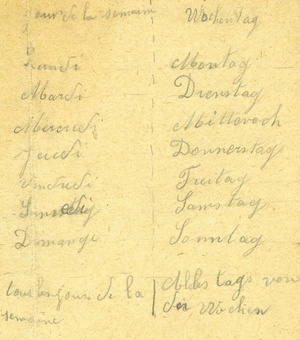 Jour de la semaine Wochentag
Lundi Montag
Mardi Dienstag
Mercredi Mittwoch
Jeudi Donnerstag
Vendredi Freitag
Samedi Samstag
Dimange Sonntag
tous les jours de la Alles tags von
semaine die Wochen